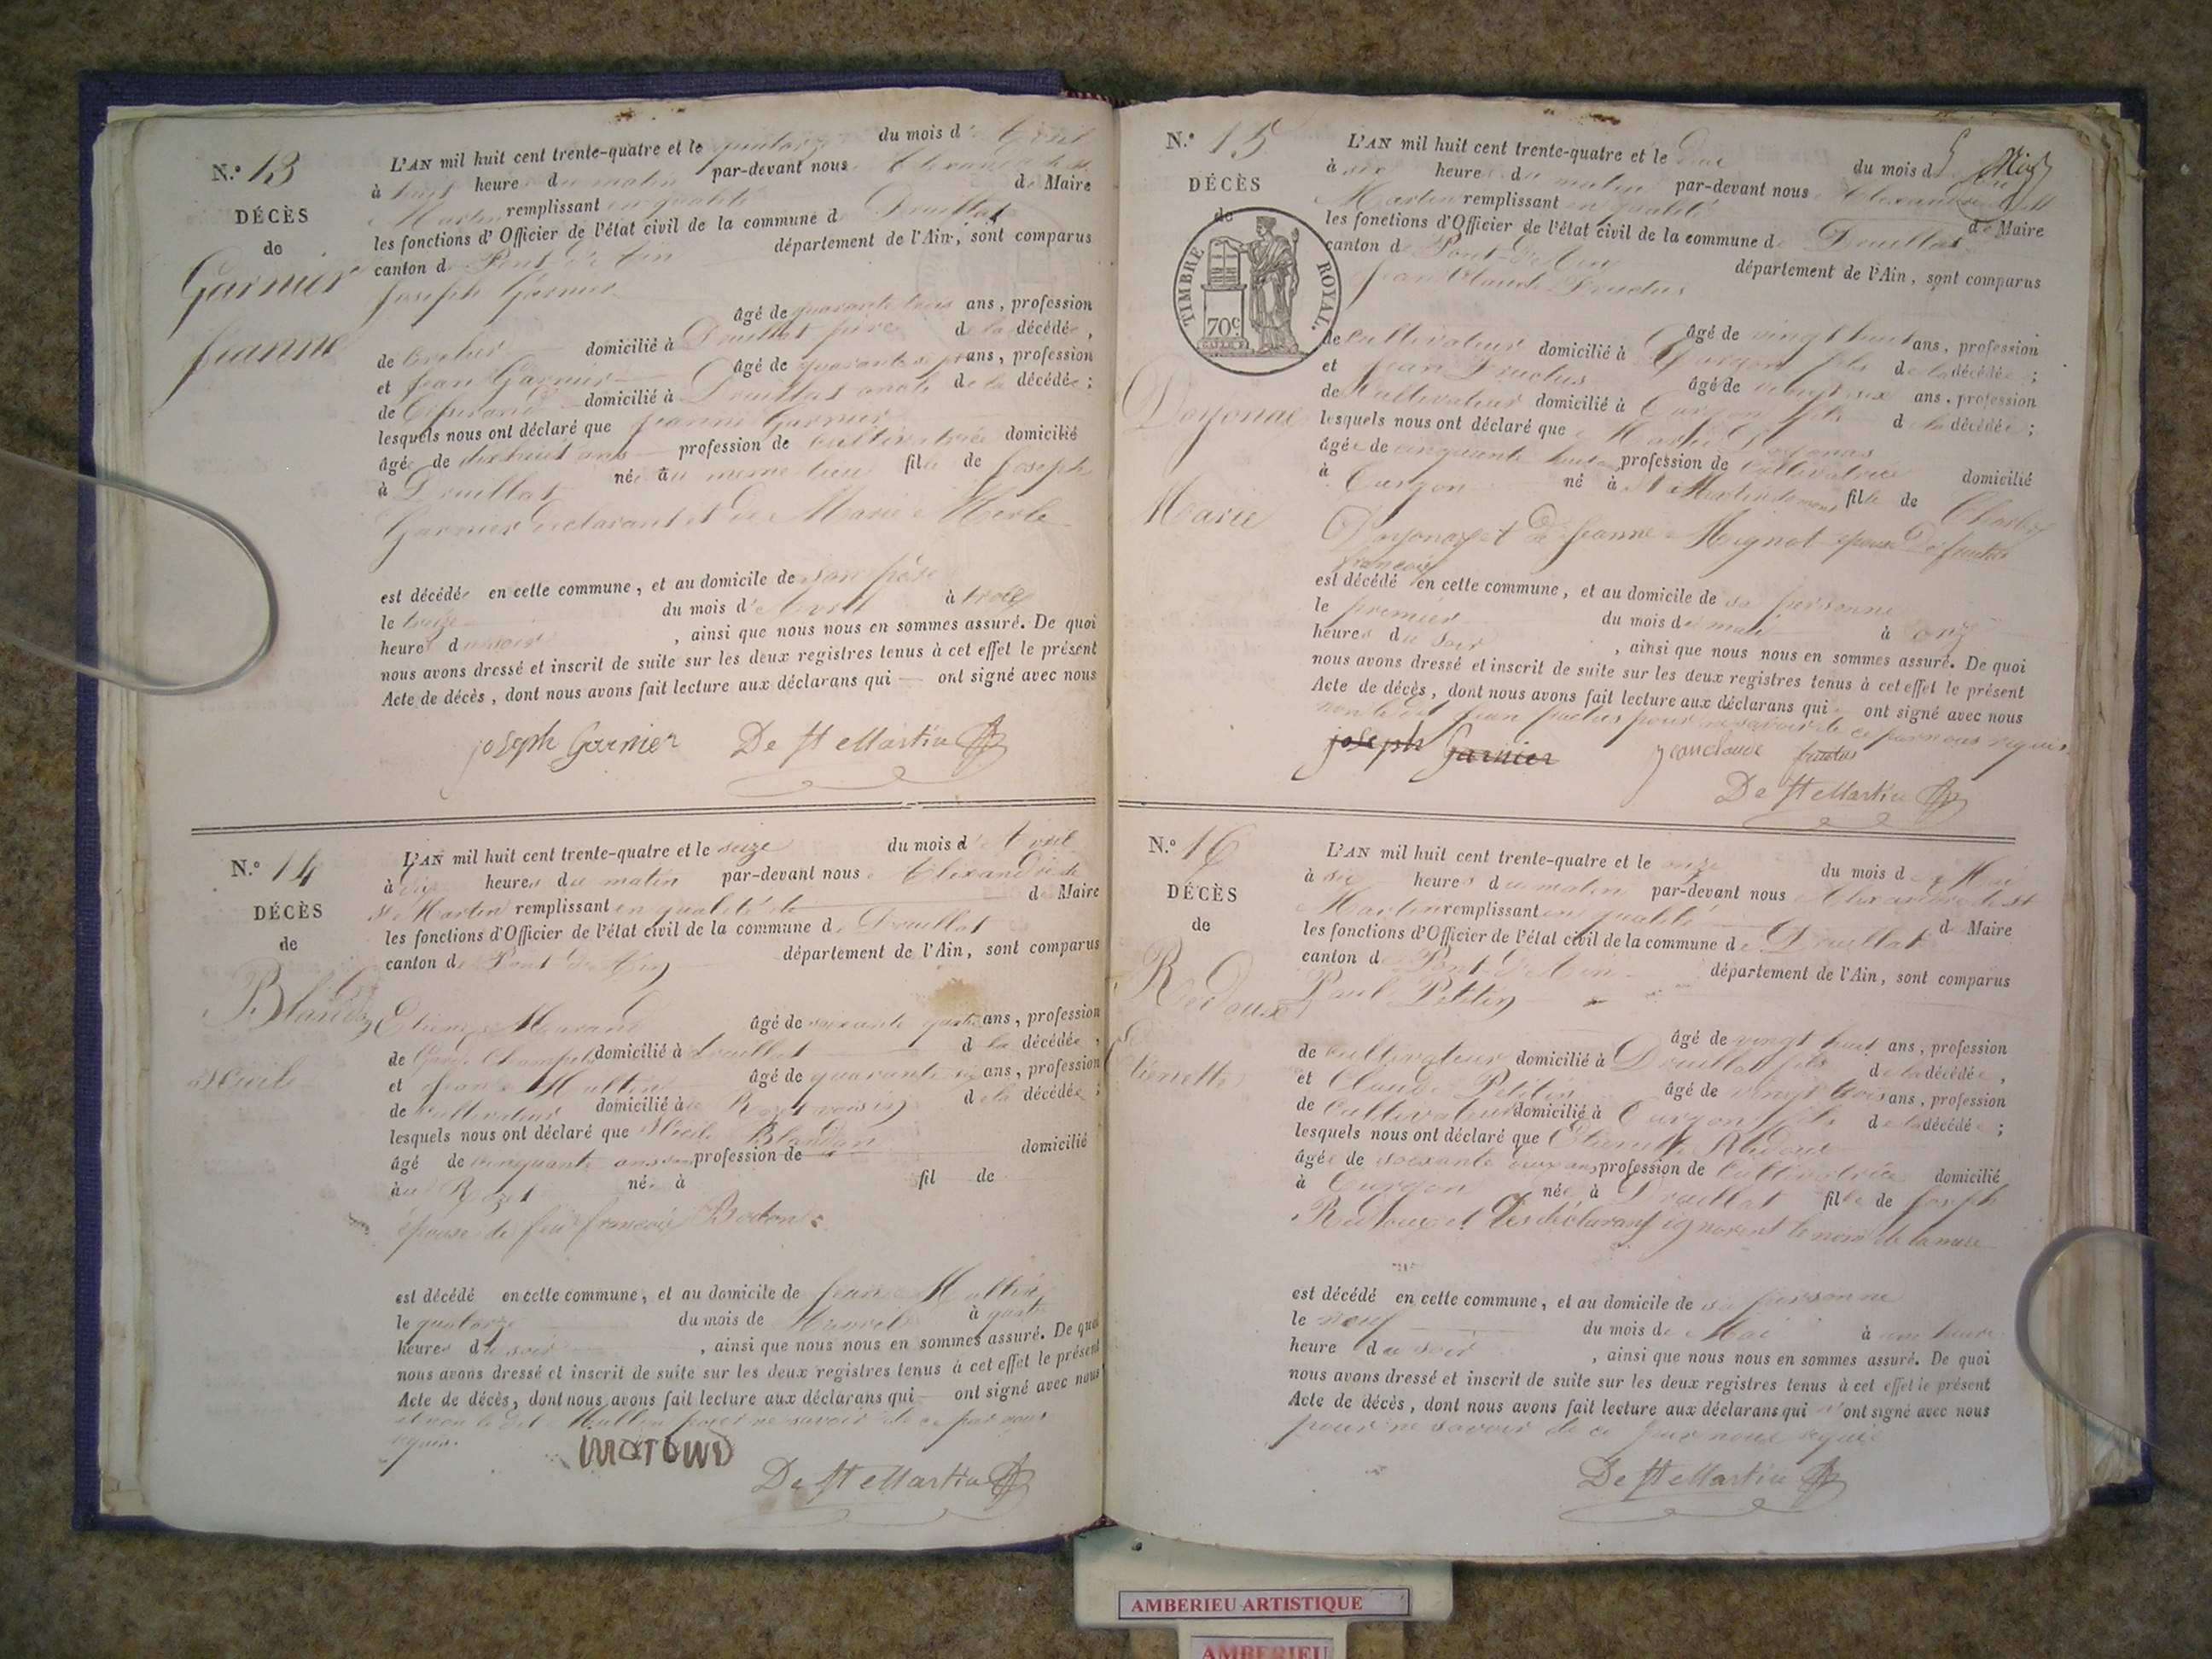 N.° 13
DÉCÈS
de
Garnier
Jeanne
L'AN mil huit cent trente-quatre et le quatorze du mois d'Avril
à huit heures du matin par-devant nous Alexandre de st
Martin remplissant en qualité de Maire
les fonctions d'Officier de l'état civil de la commune de Druillat
canton de Pont d'Ain département de l'Ain, sont comparus
Joseph Garnier
âgé de quarante trois ans, profession
de domicilié à Druillat père de la décédée,
et Jean Garnier âgé de quarante sept ans, profession
de domicilié à Druillat oncle de la décédée;
lesquels nous ont déclaré que Jeanne Garnier
âgée de dix huit ans profession de cultivatrice domicilié
à Druillat née au même lieu fille de Joseph
Garnier déclarant et de Marie Merle
est décédée en cette commune, et au domicile de son père
le treize du mois d'Avril à trois
heures du soir, ainsi que nous nous en sommes assuré. De quoi
nous avons dressé et inscrit de suite sur les deux registres tenus à cet effet le présent
Acte de décès, dont nous avons fait lecture aux déclarans qui — ont signé avec nous
joseph Garnier De St Martin
N.° 14
DÉCÈS
de
L'AN mil huit cent trente-quatre et le seize du mois d'Avril
à dix heures du matin par-devant nous Alexandre de
st Martin remplissant en qualité de de Maire
les fonctions d'Officier de l'état civil de la commune de Druillat
canton de Pont d'Ain département de l'Ain, sont comparus
âgé de soixante quatre ans, profession
de Garde Champêt domicilié à Druillat de la décédée,
et Jean Mullin âgé de quarante six ans, profession
de cultivateur domicilié au Rozet voisin de la décédée;
lesquels nous ont déclaré que Blandon
âgé de cinquante ans profession de domicilié
au Rozet née à fil de
épouse de feu françois Bodon
est décédé en cette commune, et au domicile de Jean Mullin
le quatorze du mois de à quatre
heures du soir, ainsi que nous nous en sommes assuré. De quoi
nous avons dressé et inscrit de suite sur les deux registres tenus à cet effet le présent
Acte de décès, dont nous avons fait lecture aux déclarans qui ont signé avec nous
et non le dit Mullin pour ne savoir de ce par nous
requis.
De St Martin
N.° 15
DÉCÈS
de
TIMBRE ROYAL.
70c
Doyonas
Marie
L'AN mil huit cent trente-quatre et le deux du mois de Mai
à six heures du matin par-devant nous Alexandre de st
Martin remplissant en qualité de Maire
les fonctions d'Officier de l'état civil de la commune de Druillat
canton de Pont-d'Ain département de l'Ain, sont comparus
Jean Claude Fructus
âgé de vingt huit ans, profession
de cultivateur domicilié à Turgon fils de la décédée;
et Jean Fructus âgé de vingt six ans, profession
de Cultivateur domicilié à Turgon fils de la décédée;
lesquels nous ont déclaré que Marie Doyonas
âgée de cinquante huit ans profession de cultivatrice domicilié
à Turgon né à St Martin du mont fille de Charles
Doyonas et de Jeanne Mugnot épouse de fructus
françois
est décédé en cette commune, et au domicile de sa personne
le premier du mois de mai à onze
heures du soir, ainsi que nous nous en sommes assuré. De quoi
nous avons dressé et inscrit de suite sur les deux registres tenus à cet effet le présent
Acte de décès, dont nous avons fait lecture aux déclarans qui ont signé avec nous
non le dit jean fructus pour ne savoir de ce par nous requis
joseph Garnier jean claude fructus
De St Martin
N.° 16
DÉCÈS
de
Redoux
Pierrette
L'AN mil huit cent trente-quatre et le onze du mois de Mai
à six heures du matin par-devant nous Alexandre de st
Martin remplissant en qualité de Maire
les fonctions d'Officier de l'état civil de la commune de Druillat
canton de Pont-d'Ain département de l'Ain, sont comparus
Paul Petitin
âgé de vingt huit ans, profession
de cultivateur domicilié à Druillat fils de la décédée,
et Claude Petitin âgé de vingt trois ans, profession
de Cultivateur domicilié à Turgon fils de la décédée;
lesquels nous ont déclaré que Pierrette Redoux
âgée de soixante deux ans profession de cultivatrice domicilié
à Turgon née à Druillat fille de Joseph
Redoux et les déclarans ignorent le nom de la mère
est décédé en cette commune, et au domicile de sa personne
le neuf du mois de Mai à une heure
heure du soir, ainsi que nous nous en sommes assuré. De quoi
nous avons dressé et inscrit de suite sur les deux registres tenus à cet effet le présent
Acte de décès, dont nous avons fait lecture aux déclarans qui n'ont signé avec nous
pour ne savoir de ce par nous requis
De St Martin
AMBERIEU ARTISTIQUE
AMBERIEU